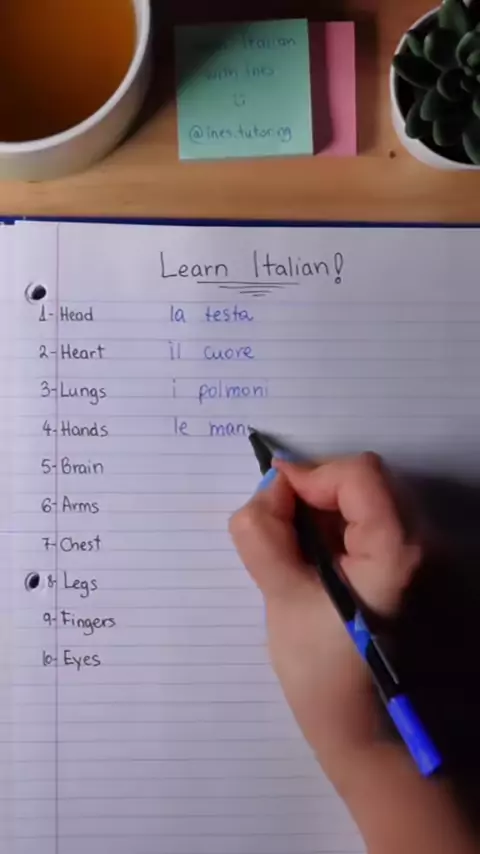 Italian
with Ines
@ines.tutoring
Learn Italian!
1- Head la testa
2- Heart il cuore
3- Lungs i polmoni
4- Hands le man
5- Brain
6- Arms
7- Chest
8- Legs
9- Fingers
10- Eyes